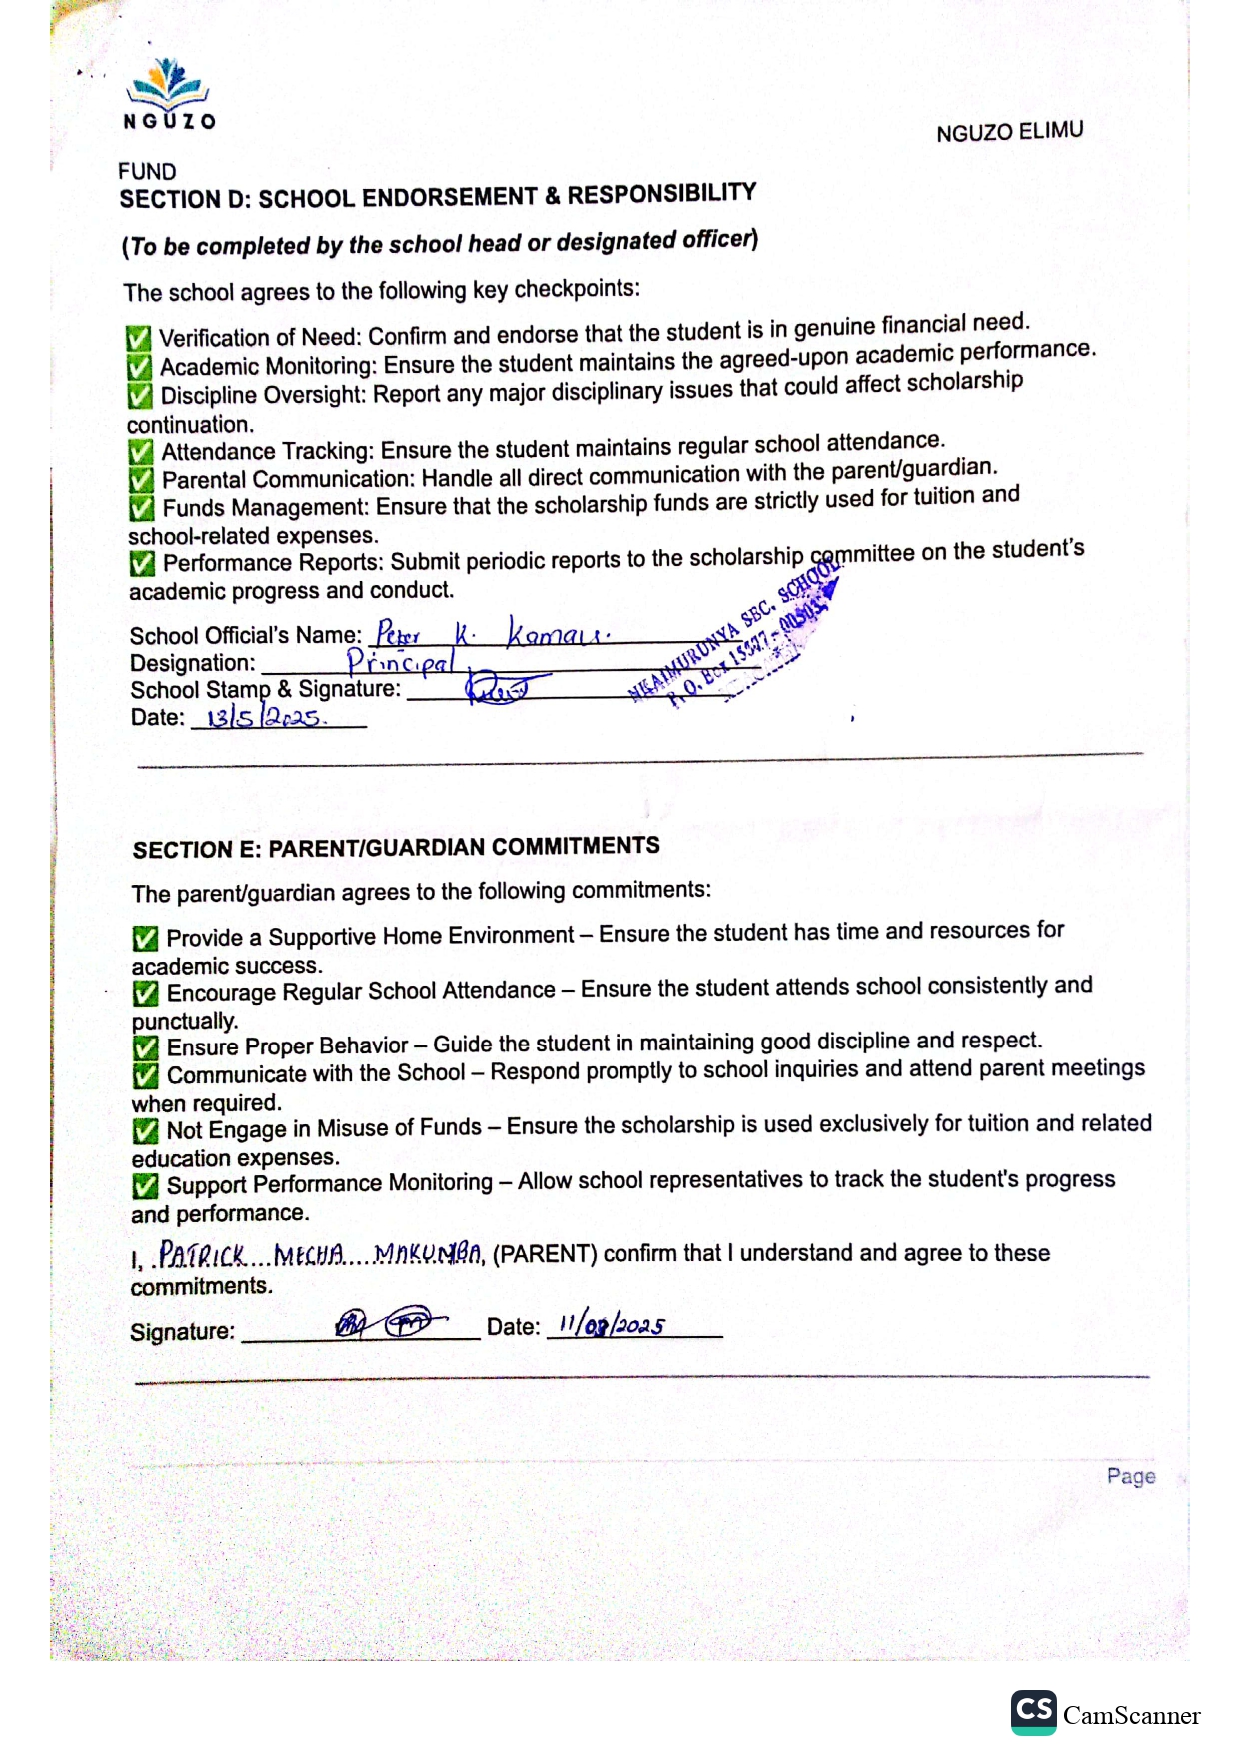 NGUZO
NGUZO ELIMU
FUND
SECTION D: SCHOOL ENDORSEMENT & RESPONSIBILITY
(To be completed by the school head or designated officer)
The school agrees to the following key checkpoints:
✅ Verification of Need: Confirm and endorse that the student is in genuine financial need.
✅ Academic Monitoring: Ensure the student maintains the agreed-upon academic performance.
✅ Discipline Oversight: Report any major disciplinary issues that could affect scholarship
continuation.
✅ Attendance Tracking: Ensure the student maintains regular school attendance.
✅ Parental Communication: Handle all direct communication with the parent/guardian.
✅ Funds Management: Ensure that the scholarship funds are strictly used for tuition and
school-related expenses.
✅ Performance Reports: Submit periodic reports to the scholarship committee on the student's
academic progress and conduct.
NKAIMURUNYA SEC. SCHOOL
P. O. Box
School Official's Name: Peter K. Kamau.
Designation: Principal
School Stamp & Signature:
Date: 13/5/2025.
SECTION E: PARENT/GUARDIAN COMMITMENTS
The parent/guardian agrees to the following commitments:
✅ Provide a Supportive Home Environment – Ensure the student has time and resources for
academic success.
✅ Encourage Regular School Attendance – Ensure the student attends school consistently and
punctually.
✅ Ensure Proper Behavior – Guide the student in maintaining good discipline and respect.
✅ Communicate with the School – Respond promptly to school inquiries and attend parent meetings
when required.
✅ Not Engage in Misuse of Funds – Ensure the scholarship is used exclusively for tuition and related
education expenses.
✅ Support Performance Monitoring – Allow school representatives to track the student's progress
and performance.
I, .PATRICK...MECHA....MAKUMBA, (PARENT) confirm that I understand and agree to these
commitments.
Signature: Date:
Page
CS CamScanner